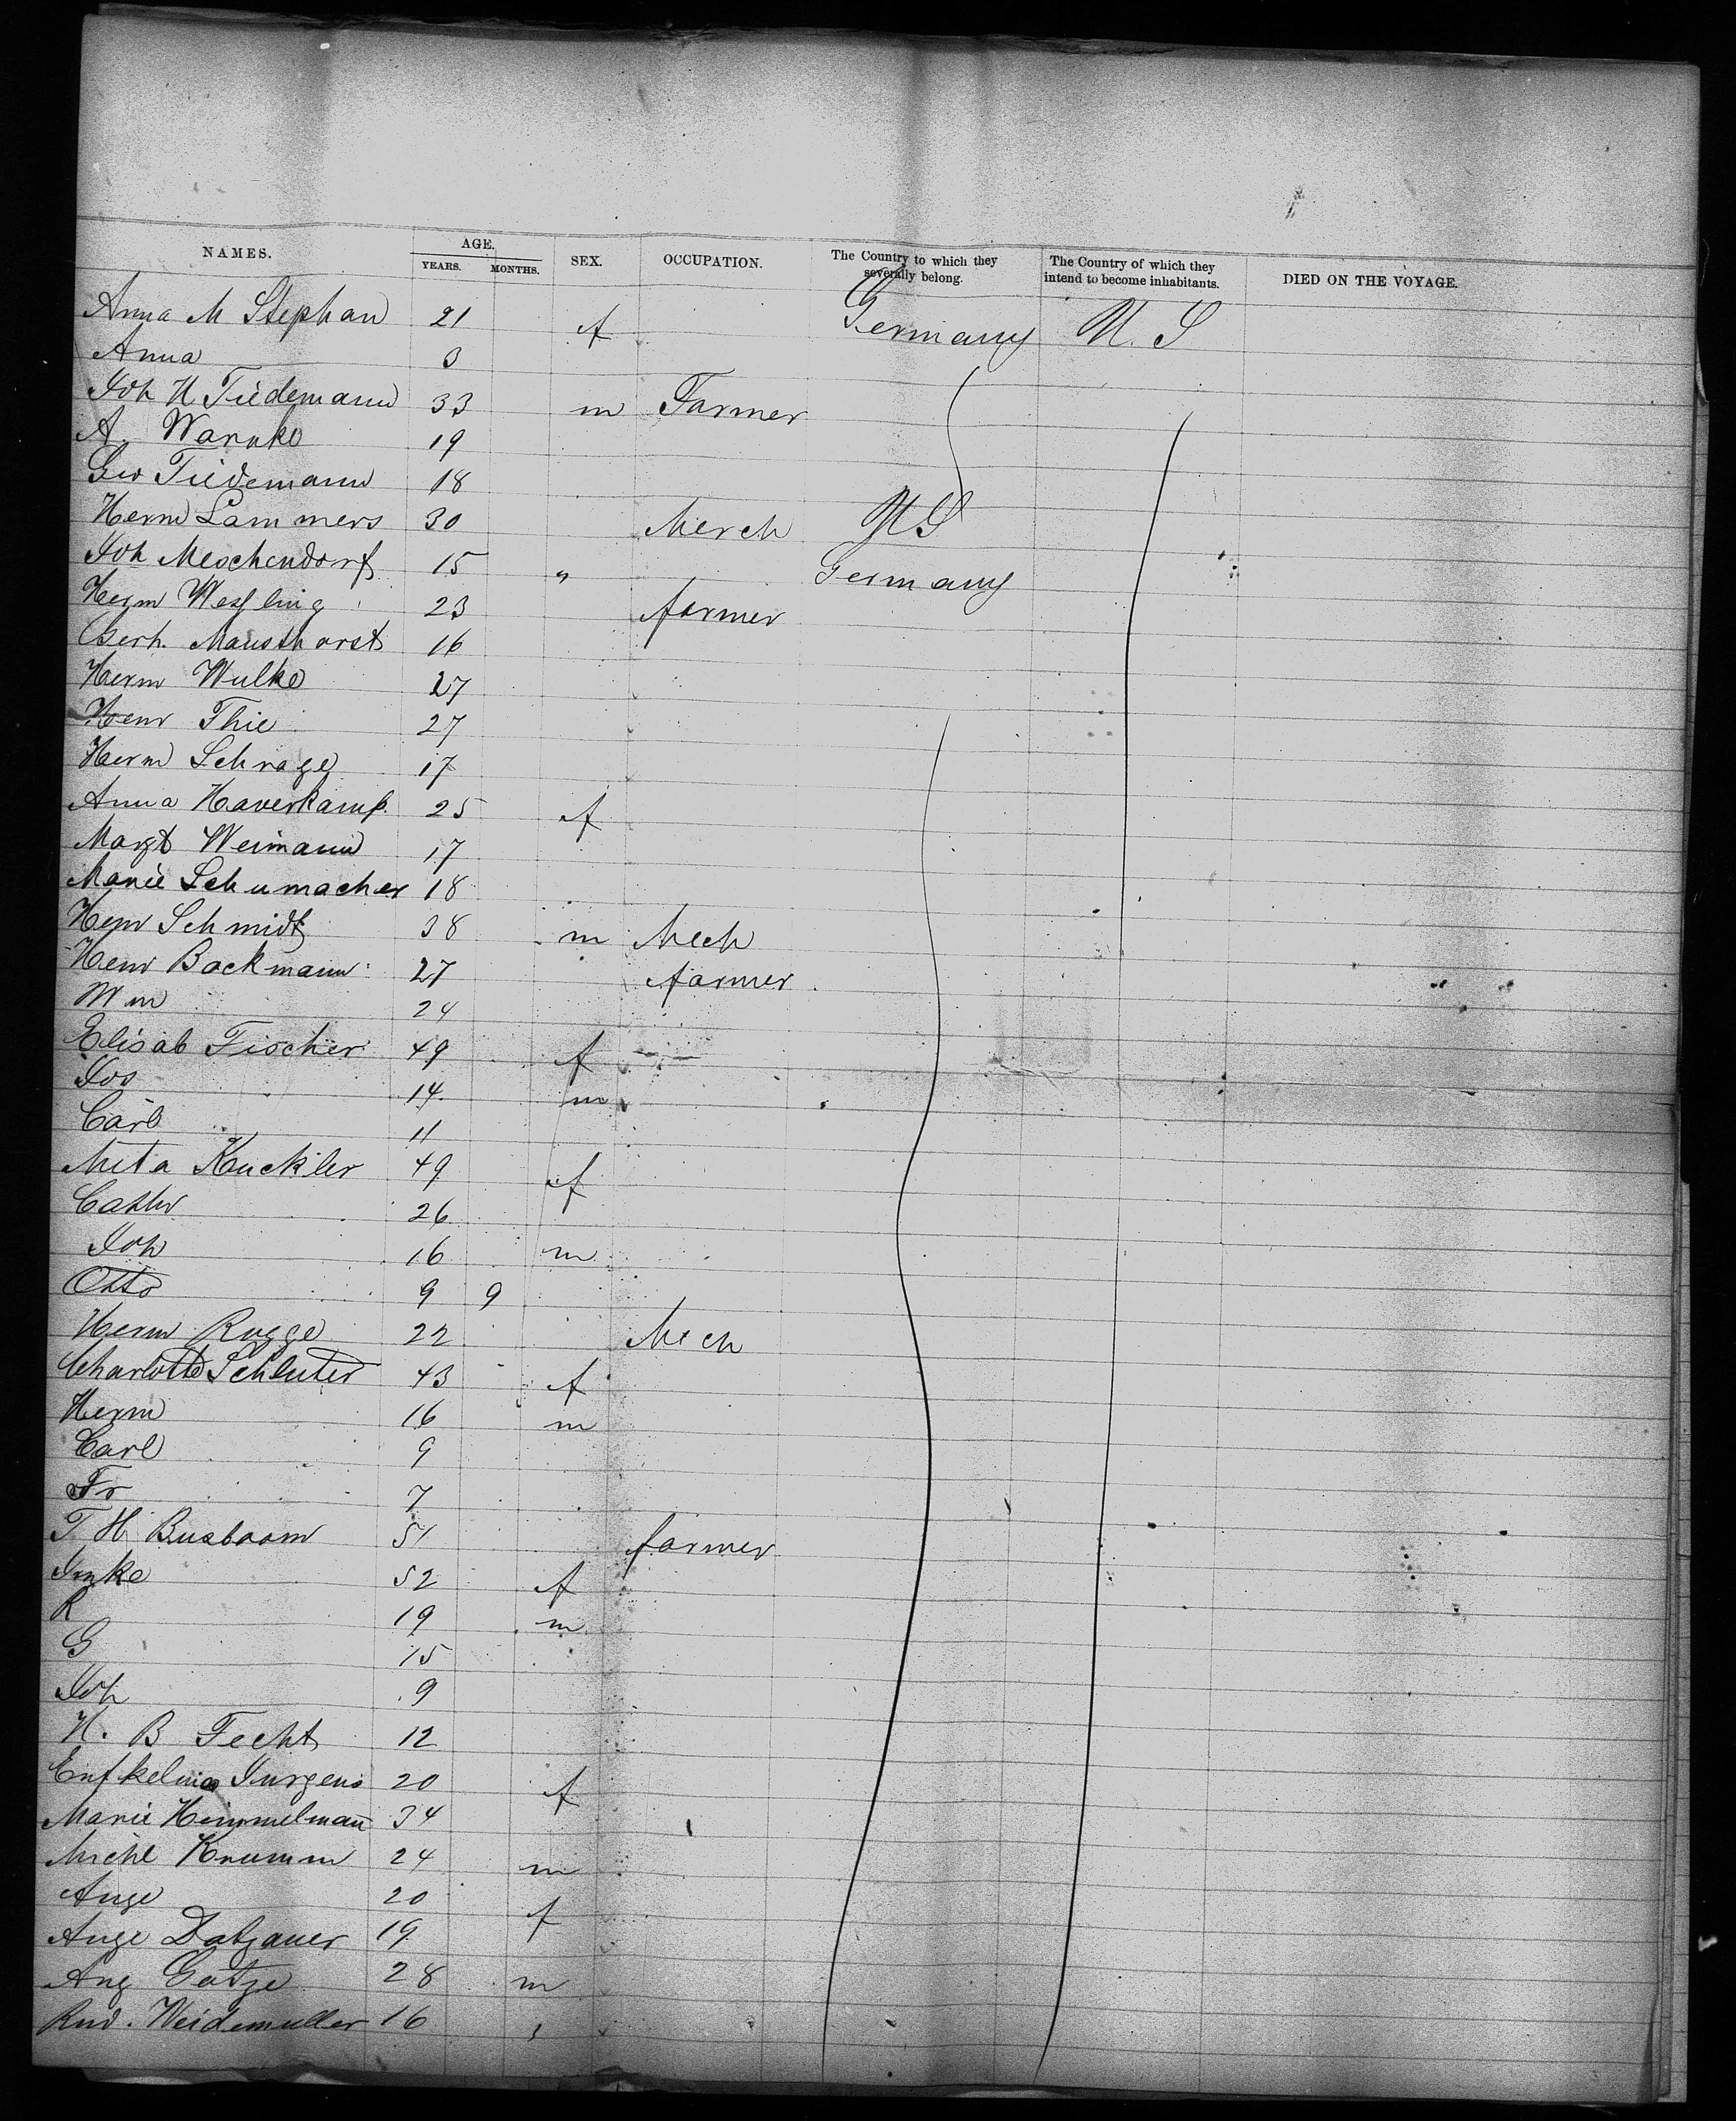 NAMES. AGE. YEARS. MONTHS. SEX. OCCUPATION. The Country to which they severally belong. The Country of which they intend to become inhabitants. DIED ON THE VOYAGE.
Anna M Stephan 21 f Germany U. S
Anna 3
Joh H Tiedemann 33 m Farmer
A. Warnke 19
Geo Tiedemann 18
Herm Lammers 30 Merch US
Joh Meschendorf 15 " Germany
Herm Wessling 23 farmer
Gerh. Mausthorst 16
Herm Wulke 27
Henr Thie 27
Herm Schrage 17
Anna Haverkamp. 25 f
Margt Weimann 17
Marie Schumacher 18
Henr Schmidt 38 m Mech
Henr Backmann 27 farmer
Wm 24
Elisab Fischer 49 f
Jos 14 m
Carl 11
Meta Kuckler 49 f
Cathr 26
Joh 16 m
Otto 9 9
Herm Rugge 22 Mech
Charlotte Schluter 43 f
Herm 16 m
Carl 9
Fr 7
T H Busboom 51 farmer
Imke 52 f
R 19 m
G 15
Joh 9
H. B Fecht 12
Jurgens 20 f
Marie Himmelmann 34
Michl Krumm 24 m
Auge 20 f
Auge Datzauer 19
Aug Gotze 28 m
Rud. Weidemuller 16